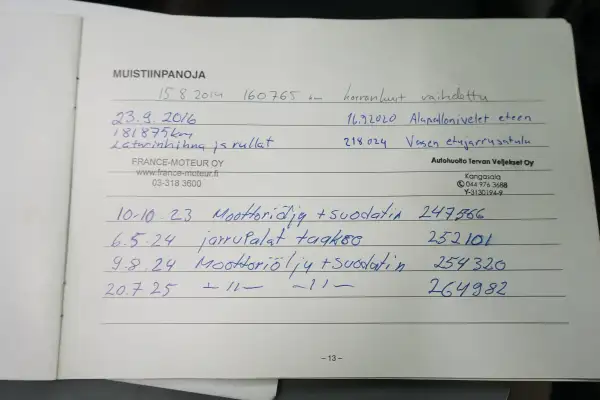 MUISTIINPANOJA
15 8 2014 160765 km koiranluut vaihdettu
23.9. 2016
181875km
Laturinhihna ja rullat
16.9.2020 Alapallonivelet eteen
218 024 Vasen etujarrusatula
FRANCE-MOTEUR OY
www.france-moteur.fi
03-318 3600
Autohuolto Tervan Veljekset Oy
Kangasala
044 976 3688
Y-3130194-9
10-10. 23 Moottoriöljy + suodatin 247566
6.5.24 jarrupalat taakse 252101
9.8.24 Moottoriöljy + suodatin 254320
20.7 25 –〃– –〃– 264982
-13-